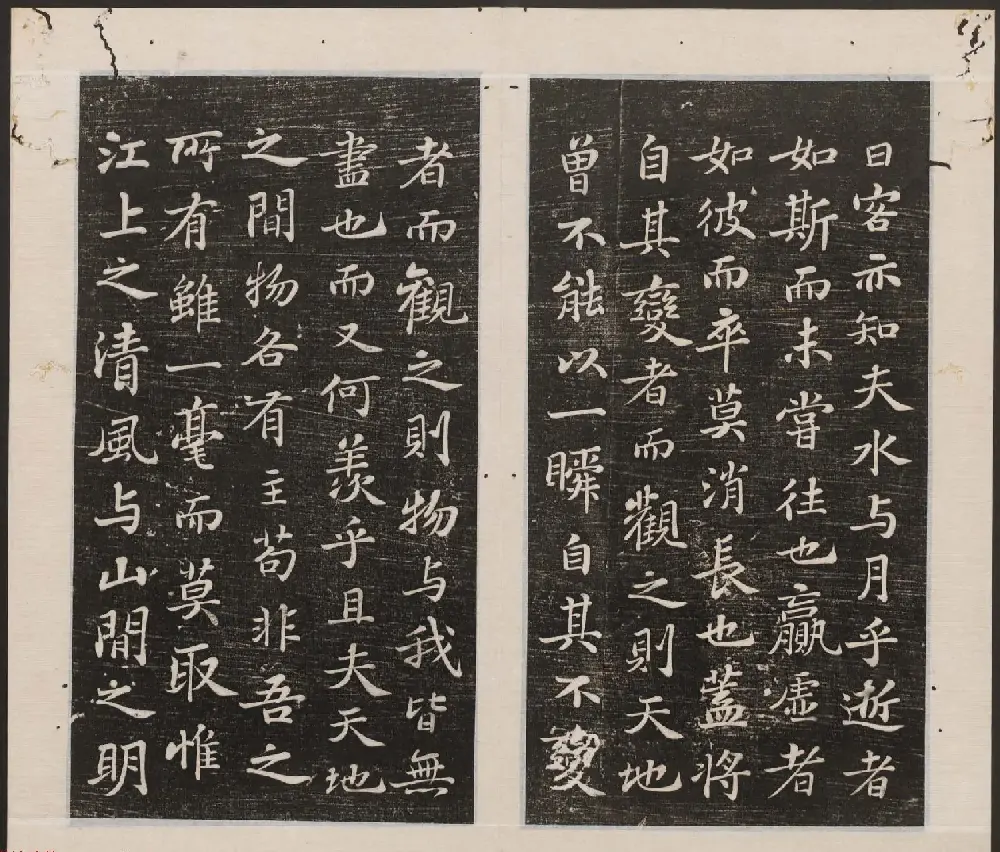 曰客亦知夫水与月乎逝者
如斯而未嘗往也贏虛者
如彼而卒莫消長也蓋將
自其變者而觀之則天地
曾不能以一瞬自其不變
者而觀之則物与我皆無
盡也而又何羨乎且夫天地
之間物各有主苟非吾之
所有雖一毫而莫取惟
江上之清風与山間之明